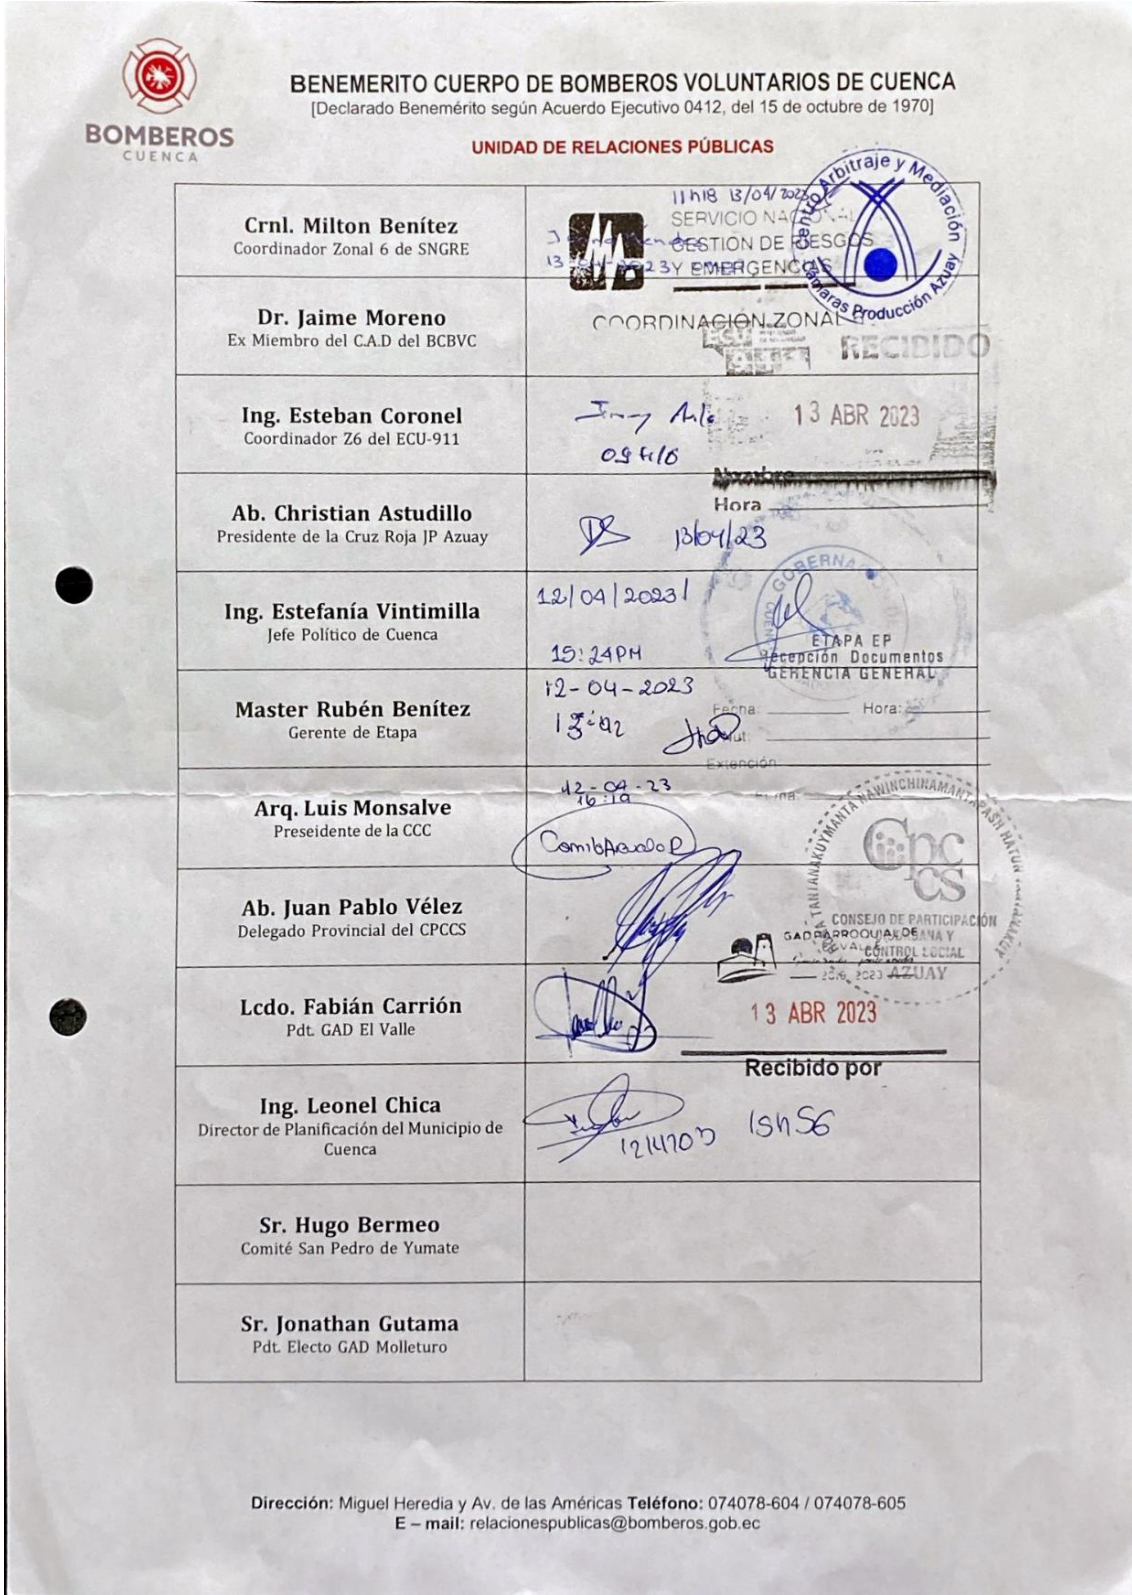 BOMBEROS
CUENCA
BENEMERITO CUERPO DE BOMBEROS VOLUNTARIOS DE CUENCA
[Declarado Benemérito según Acuerdo Ejecutivo 0412, del 15 de octubre de 1970]
UNIDAD DE RELACIONES PÚBLICAS
Crnl. Milton Benítez
Coordinador Zonal 6 de SNGRE
11h18 13/04/2023
SERVICIO NACIONAL
GESTION DE RIESGOS
Y EMERGENCIAS
13-04-2023
Centro Arbitraje y Mediación
Cámaras Producción Azuay
Dr. Jaime Moreno
Ex Miembro del C.A.D del BCBVC
COORDINACIÓN ZONAL
ECU
911
RECIBIDO
Ing. Esteban Coronel
Coordinador Z6 del ECU-911
13 ABR 2023
Nombre
Hora
Ab. Christian Astudillo
Presidente de la Cruz Roja JP Azuay
13/04/23
Ing. Estefanía Vintimilla
Jefe Político de Cuenca
12/04/2023
15:24PM
ETAPA EP
Recepción Documentos
GERENCIA GENERAL
Master Rubén Benítez
Gerente de Etapa
12-04-2023
Fecha: Hora:
Extención
Arq. Luis Monsalve
Preseidente de la CCC
12-04-23
16:19
Ab. Juan Pablo Vélez
Delegado Provincial del CPCCS
Cpc
cs
CONSEJO DE PARTICIPACIÓN
CONTROL SOCIAL
AZUAY
GAD PARROQUIAL DE
Lcdo. Fabián Carrión
Pdt. GAD El Valle
13 ABR 2023
Recibido por
Ing. Leonel Chica
Director de Planificación del Municipio de
Cuenca
15h56
Sr. Hugo Bermeo
Comité San Pedro de Yumate
Sr. Jonathan Gutama
Pdt. Electo GAD Molleturo
Dirección: Miguel Heredia y Av. de las Américas Teléfono: 074078-604 / 074078-605
E – mail: relacionespublicas@bomberos.gob.ec